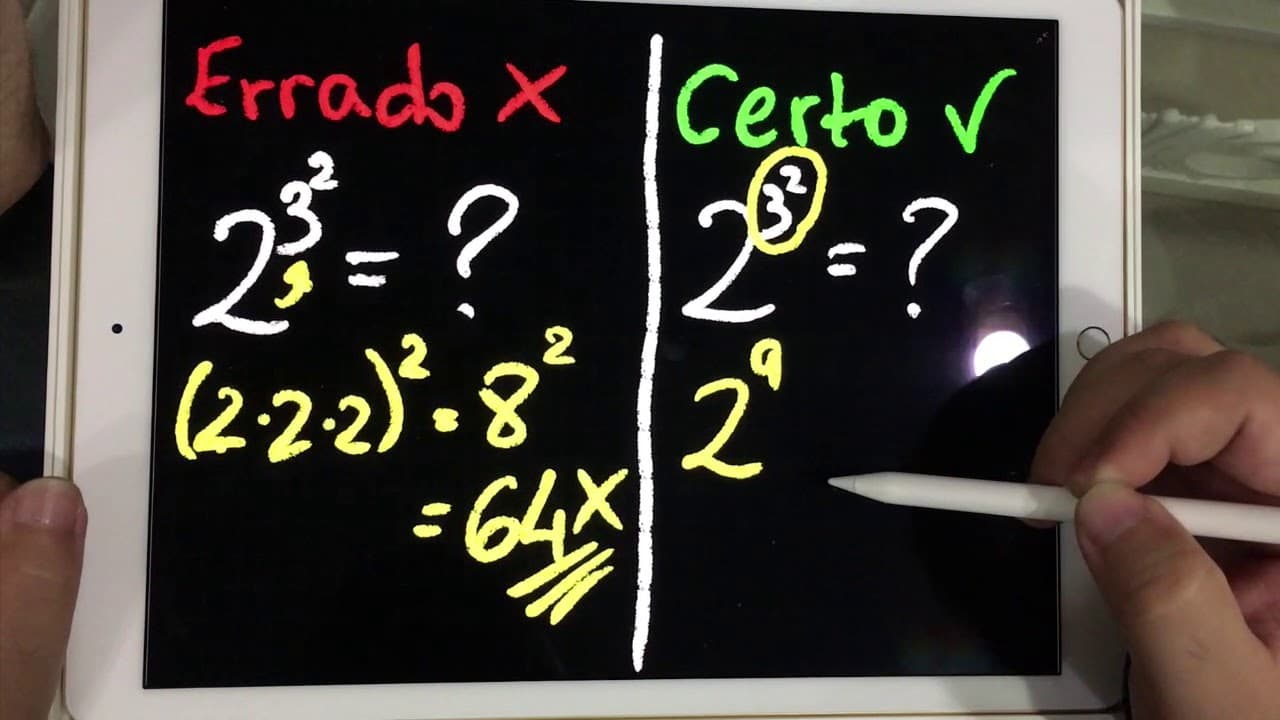 Errado X
2^3^2 = ?
9
(2·2·2)^2 = 8^2
= 64 X
Certo √
2^3^2 = ?
2^9